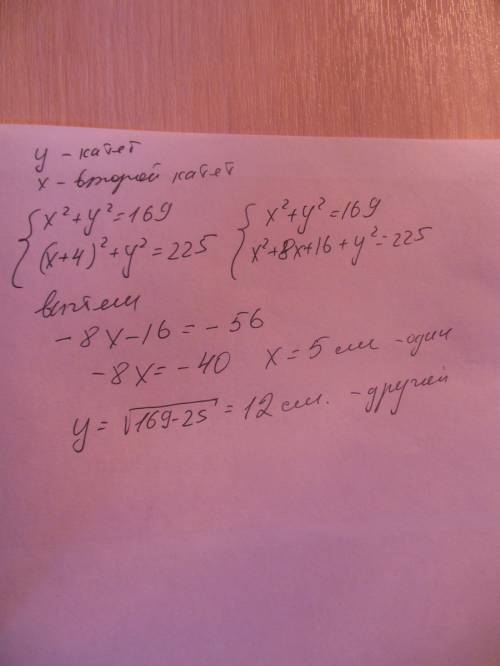 y - катет
x - второй катет
{ x²+y²=169 { x²+y²=169
(x+4)²+y²=225 x²+8x+16+y²=225
вычтем
-8x-16=-56
-8x=-40 x=5 см - один
y=√169-25=12 см. - другой